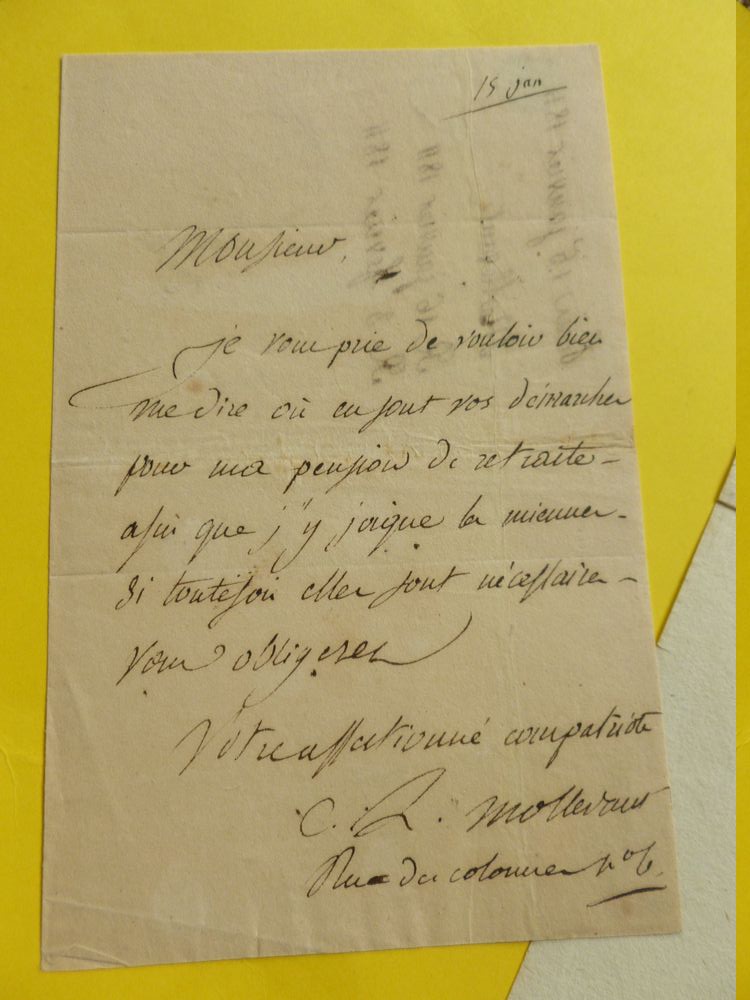 15 jan
Monsieur,
je vous prie de vouloir bien
me dire où en sont vos démarches
pour ma pension de retraite
afin que j'y joigne les miennes
si toutefois elles sont nécessaires
vous obligerez
Votre affectionné compatriote
C. L. Mollevaut
Rue des colonnes n° 6.